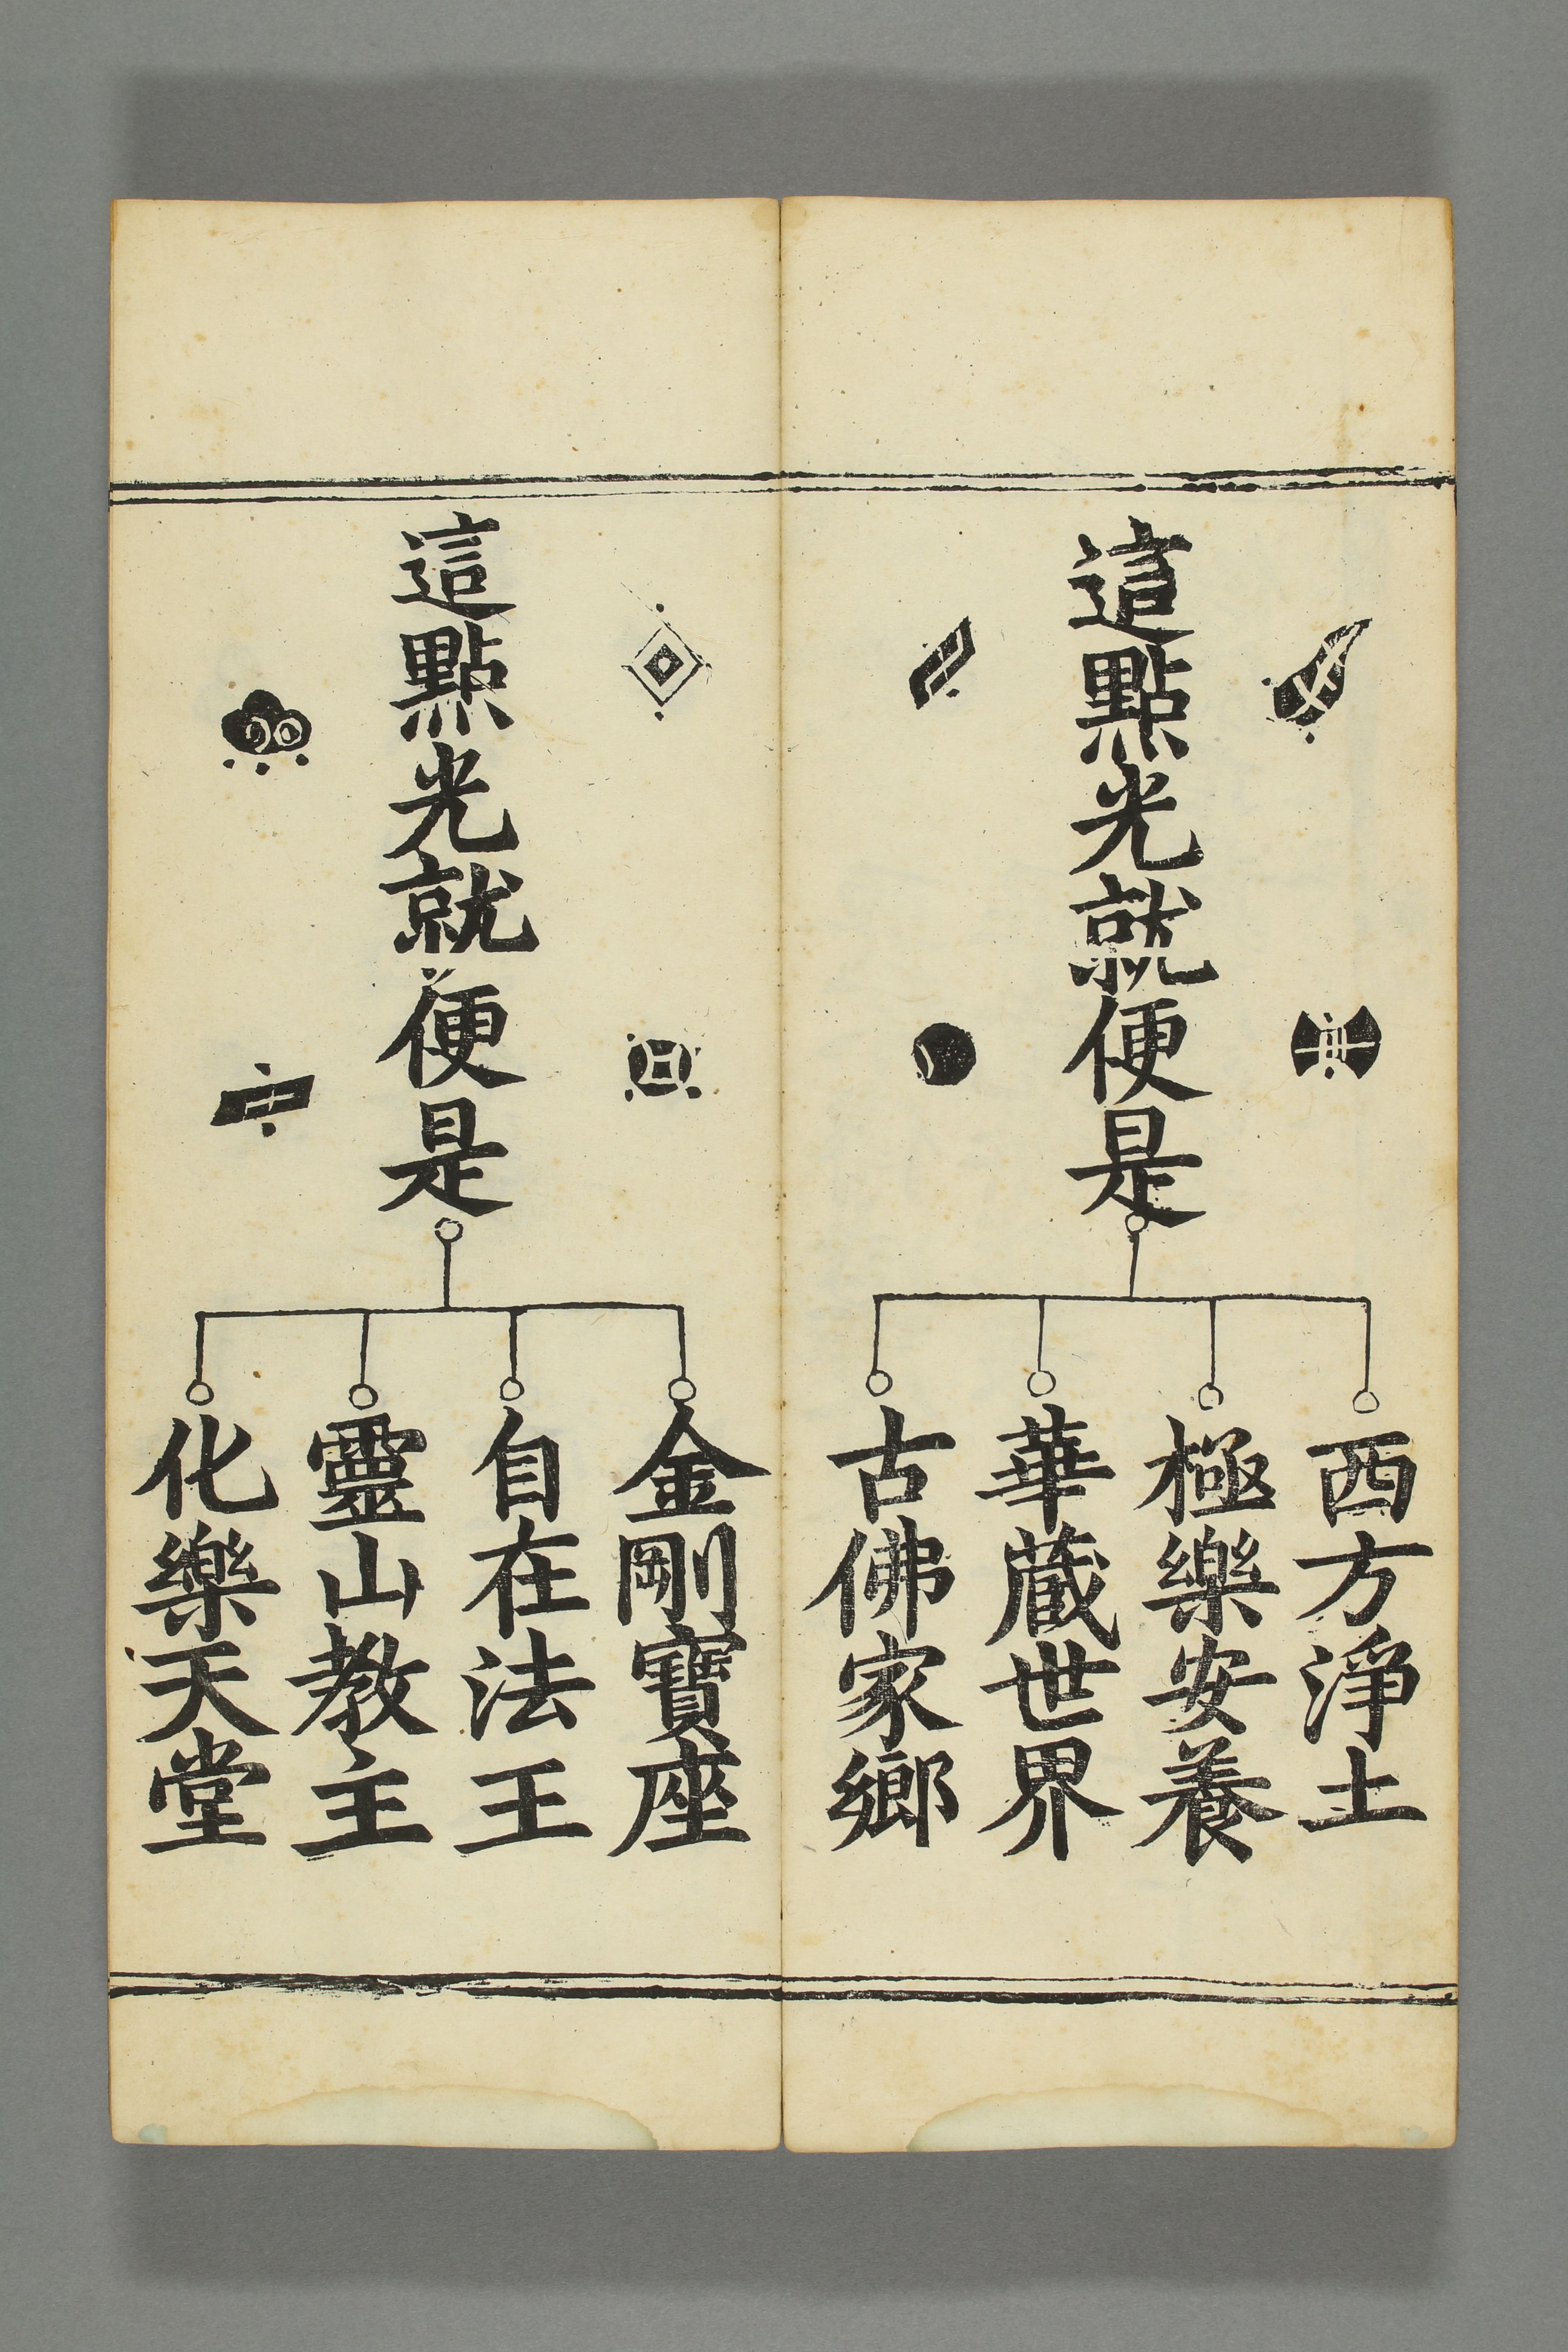 這點光就便是
西方淨土
極樂安養
華蔵世界
古佛家鄉
這點光就便是
金剛寶座
自在法王
靈山教主
化樂天堂